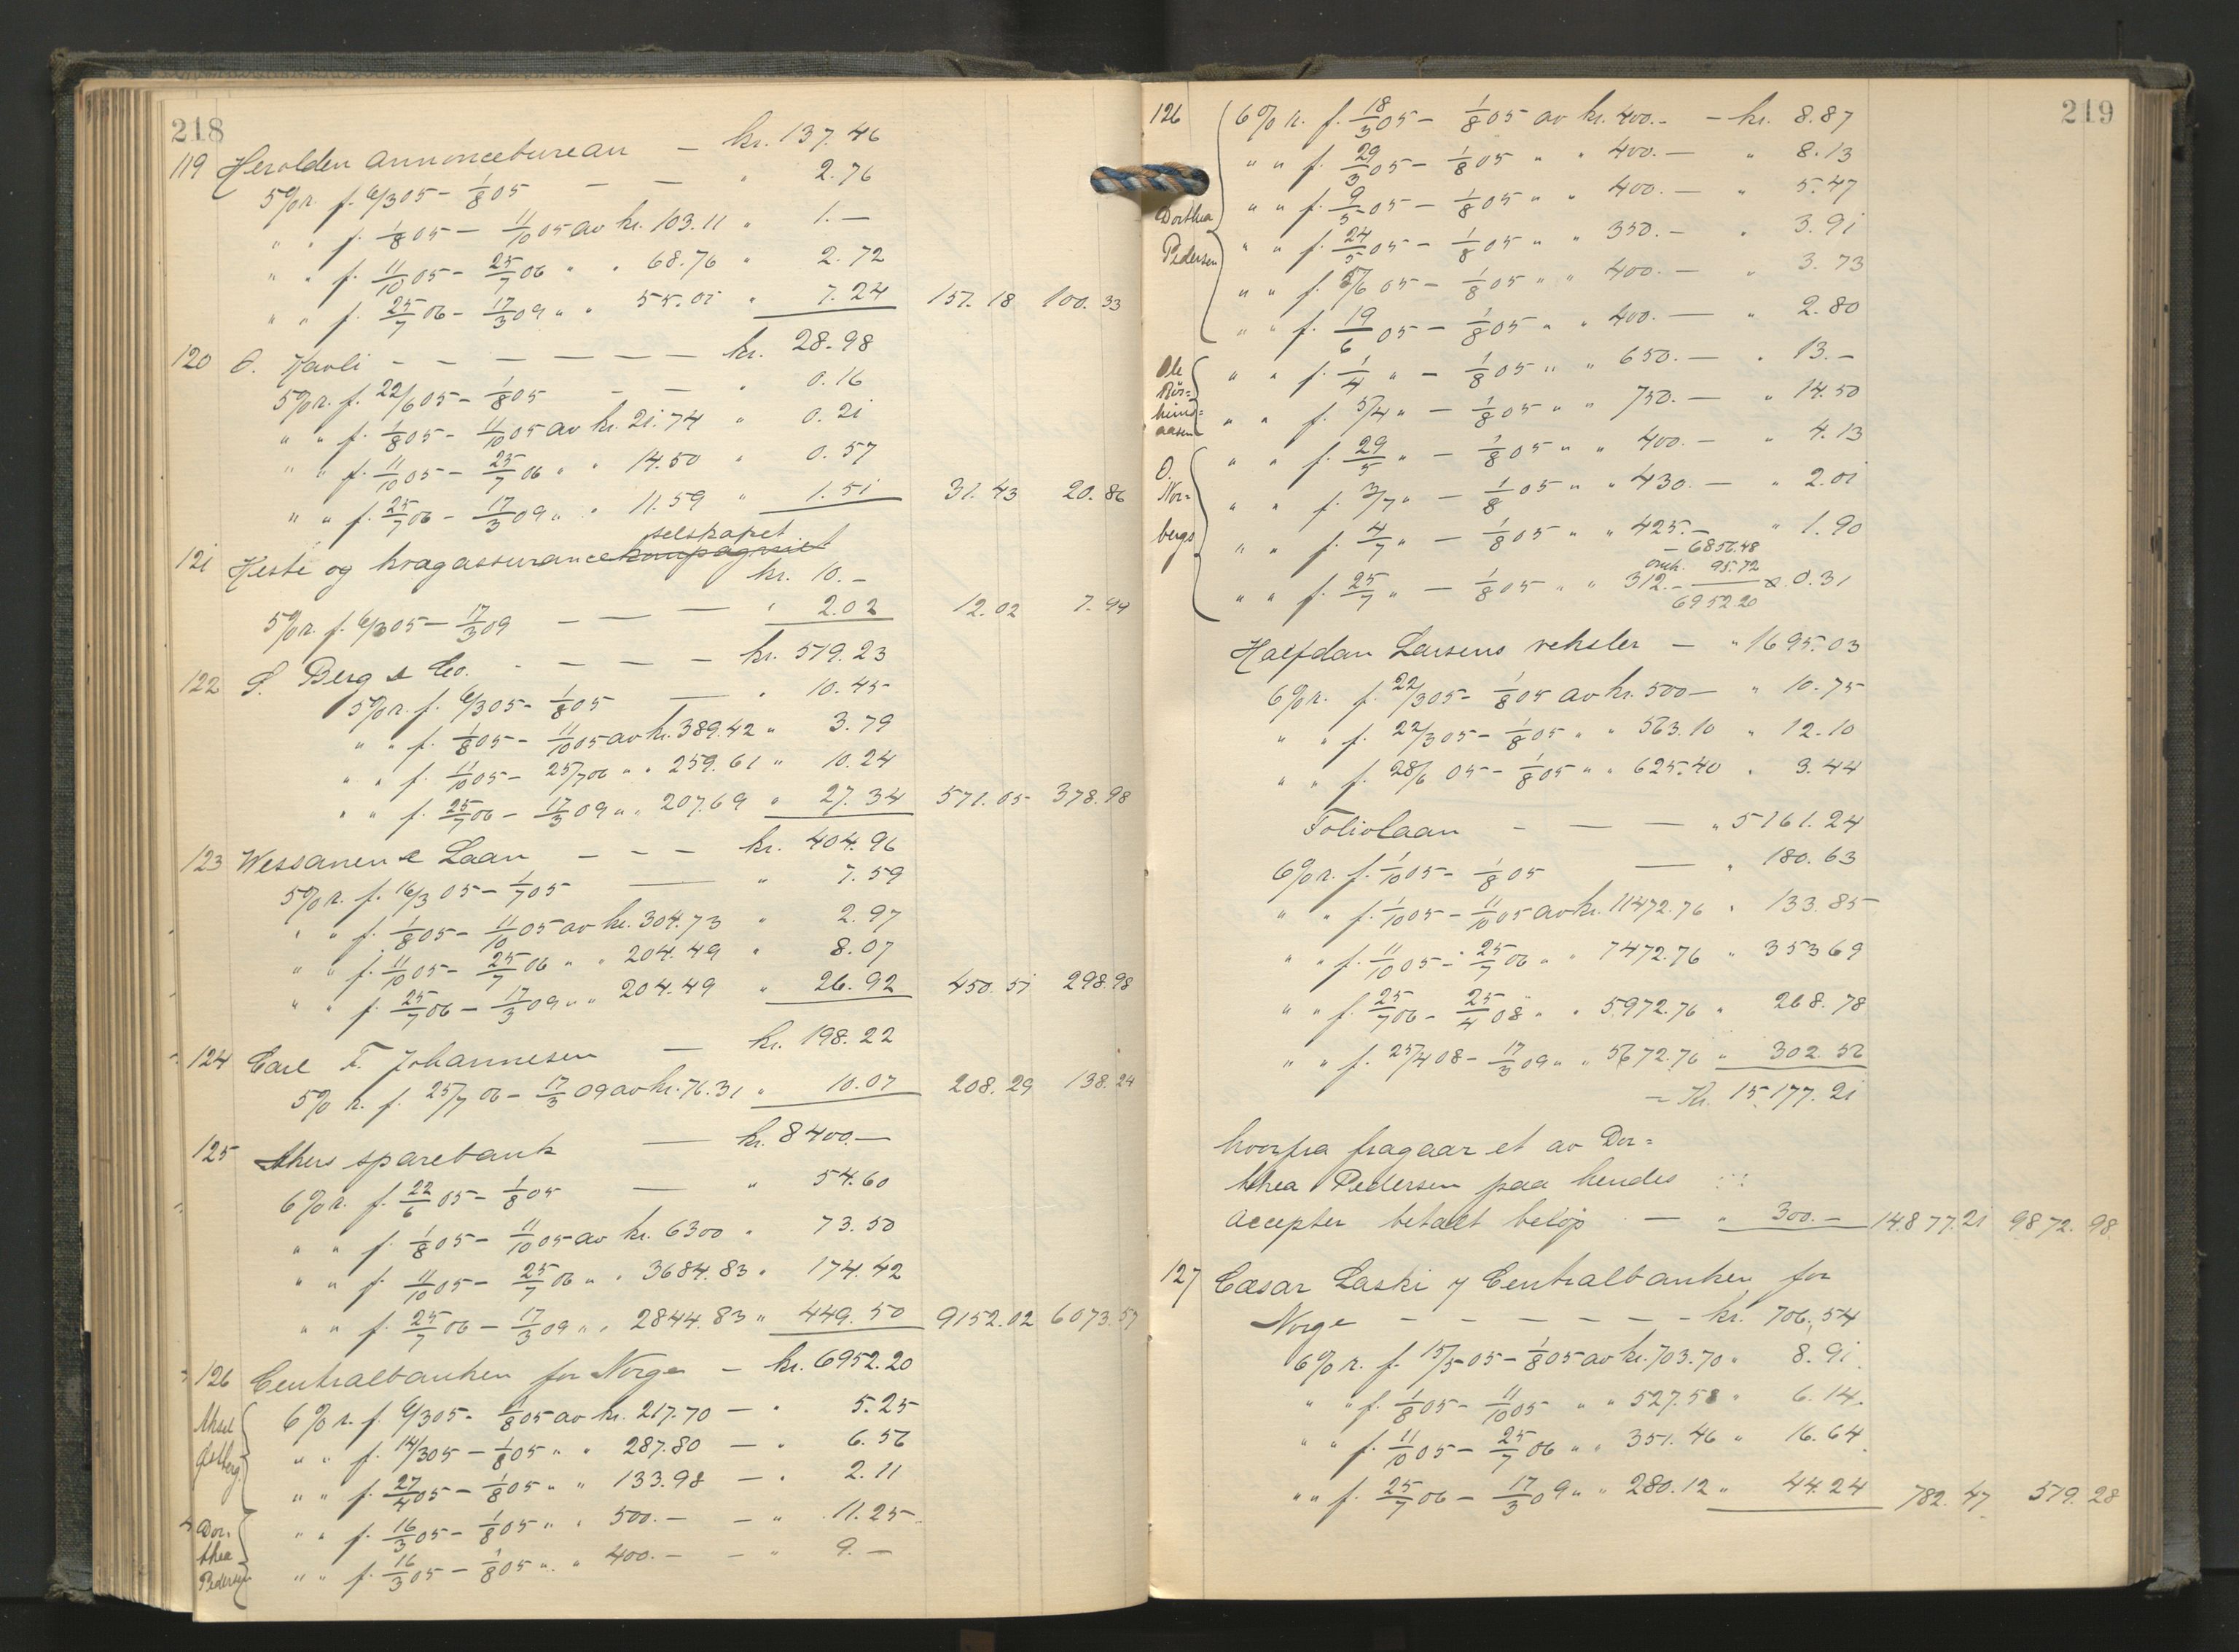 218
119 Herolden annoncebureau — kr. 137.46
5% r. f. 6/3 05 - 1/8 05 — — " 2.76
" " f. 1/8 05 - 11/10 05 av kr. 103.11 " 1.—
" " f. 11/10 05 - 25/7 06 " " 68.76 " 2.72
" " f. 25/7 06 - 17/3 09 " " 55.01 " 7.24 151.18 100.33
120 O. Kavli — — — — — — kr. 28.98
5% r. f. 22/6 05 - 1/8 05 — — " 0.16
" " f. 1/8 05 - 11/10 05 av kr. 21.74 " 0.21
" " f. 11/10 05 - 25/7 06 " " 14.50 " 0.57
" " f. 25/7 06 - 17/3 09 " " 11.59 " 1.51 31.43 20.86
selskapet
121 Heste og kvagassurancekompagniet
kr. 10.—
5% r. f. 6/3 05 - 17/3 09 — — — " 2.02 12.02 7.99
122 S. Berg & Co. - — — — kr. 519.23
5% r. f. 6/3 05 - 1/8 05 — " 10.45
" " f. 1/8 05 - 11/10 05 av kr. 389.42 " 3.79
" " f. 11/10 05 - 25/7 06 " " 259.61 " 10.24
" " f. 25/7 06 - 17/3 09 " " 207.69 " 27.34 571.05 378.98
123 Wessanen & Laan — — — kr. 404.96
5% r. f. 16/3 05 - 1/7 05 — " 7.59
" " f. 1/8 05 - 11/10 05 av kr. 304.73 " 2.97
" " f. 11/10 05 - 25/7 06 " " 204.49 " 8.07
" " f. 25/7 06 - 17/3 09 " " 204.49 " 26.92 450.51 298.98
124 Carl F. Johannesen — kr. 198.22
5% r. f. 25/7 06 - 17/3 09 av kr. 76.31 " 10.07 208.29 138.24
125 Akers sparebank — kr. 8400.—
6% r. f. 22/6 05 - 1/8 05 — " 54.60
" " f. 1/8 05 - 11/10 05 av kr. 6300 " 73.50
" " f. 11/10 05 - 25/7 06 " " 3684.83 " 174.42
" " f. 25/7 06 - 17/3 09 " " 2844.83 " 449.50 9152.02 6073.57
126 Centralbanken for Norge — kr. 6952.20
Aksel Østberg
6% r. f. 6/3 05 - 1/8 05 av kr. 217.70 — " 5.25
" " f. 14/3 05 - 1/8 05 " " 287.80 — " 6.56
" " f. 27/4 05 - 1/8 05 " " 133.98 — " 2.11
Dorthea Pedersen
" " f. 16/3 05 - 1/8 05 " " 500.— — " 11.25
" " f. 16/3 05 - 1/8 05 " " 400.— — " 9.—
219
126 6% r. f. 18/3 05 - 1/8 05 av kr. 400.— — kr. 8.87
" " f. 29/3 05 - 1/8 05 " " 400.— " 8.13
Dorthea Pedersen
" " f. 9/5 05 - 1/8 05 " " 400.— " 5.47
" " f. 24/5 05 - 1/8 05 " " 350.— " 3.91
" " f. 5/6 05 - 1/8 05 " " 400.— " 3.73
" " f. 19/6 05 - 1/8 05 " " 400.— " 2.80
Ole
" " f. 1/4 " - 1/8 05 " " 650.— " 13.—
" " f. 5/4 " - 1/8 05 " " 750.— " 14.50
O. Norbergs
" " f. 29/5 " - 1/8 05 " " 400.— " 4.13
" " f. 3/7 " - 1/8 05 " " 430.— " 2.01
" " f. 4/7 " - 1/8 05 " " 425.— " 1.90
— 6856.48
omk. 95.72
" " f. 25/7 " - 1/8 05 " " 312.— " 0.31
6952.20
Halfdan Larsens veksler — " 1695.03
6% r. f. 22/3 05 - 1/8 05 av kr. 500 — " 10.75
" " f. 22/3 05 - 1/8 05 " " 563.10 " 12.10
" " f. 28/6 05 - 1/8 05 " " 625.40 " 3.44
Foliolaan - — — " 5161.24
6% r. f. 1/10 05 - 1/8 05 — " 180.63
" " f. 1/10 05 - 11/10 05 av kr. 11472.76 " 133.85
" " f. 11/10 05 - 25/7 06 " " 7472.76 " 353.69
" " f. 25/7 06 - 25/4 08 " " 5972.76 " 268.78
" " f. 25/4 08 - 17/3 09 " " 5672.76 " 302.56
= Kr. 15.177.21
hvorfra fragaar et av Dor=
thea Pedersen paa hendes
accepter betalt beløp — " 300.— 14.877.21 9872.98
127 Cæsar Laski / Centralbanken for
Norge — — — — — — kr. 706.54
6% r. f. 15/5 05 - 1/8 05 av kr. 703.70 " 8.91
" " f. 1/8 05 - 11/10 05 " " 527.58 " 6.14
" " f. 11/10 05 - 25/7 06 " " 351.46 " 16.64
" " f. 25/7 06 - 17/3 09 " " 280.12 " 44.24 782.47 519.28